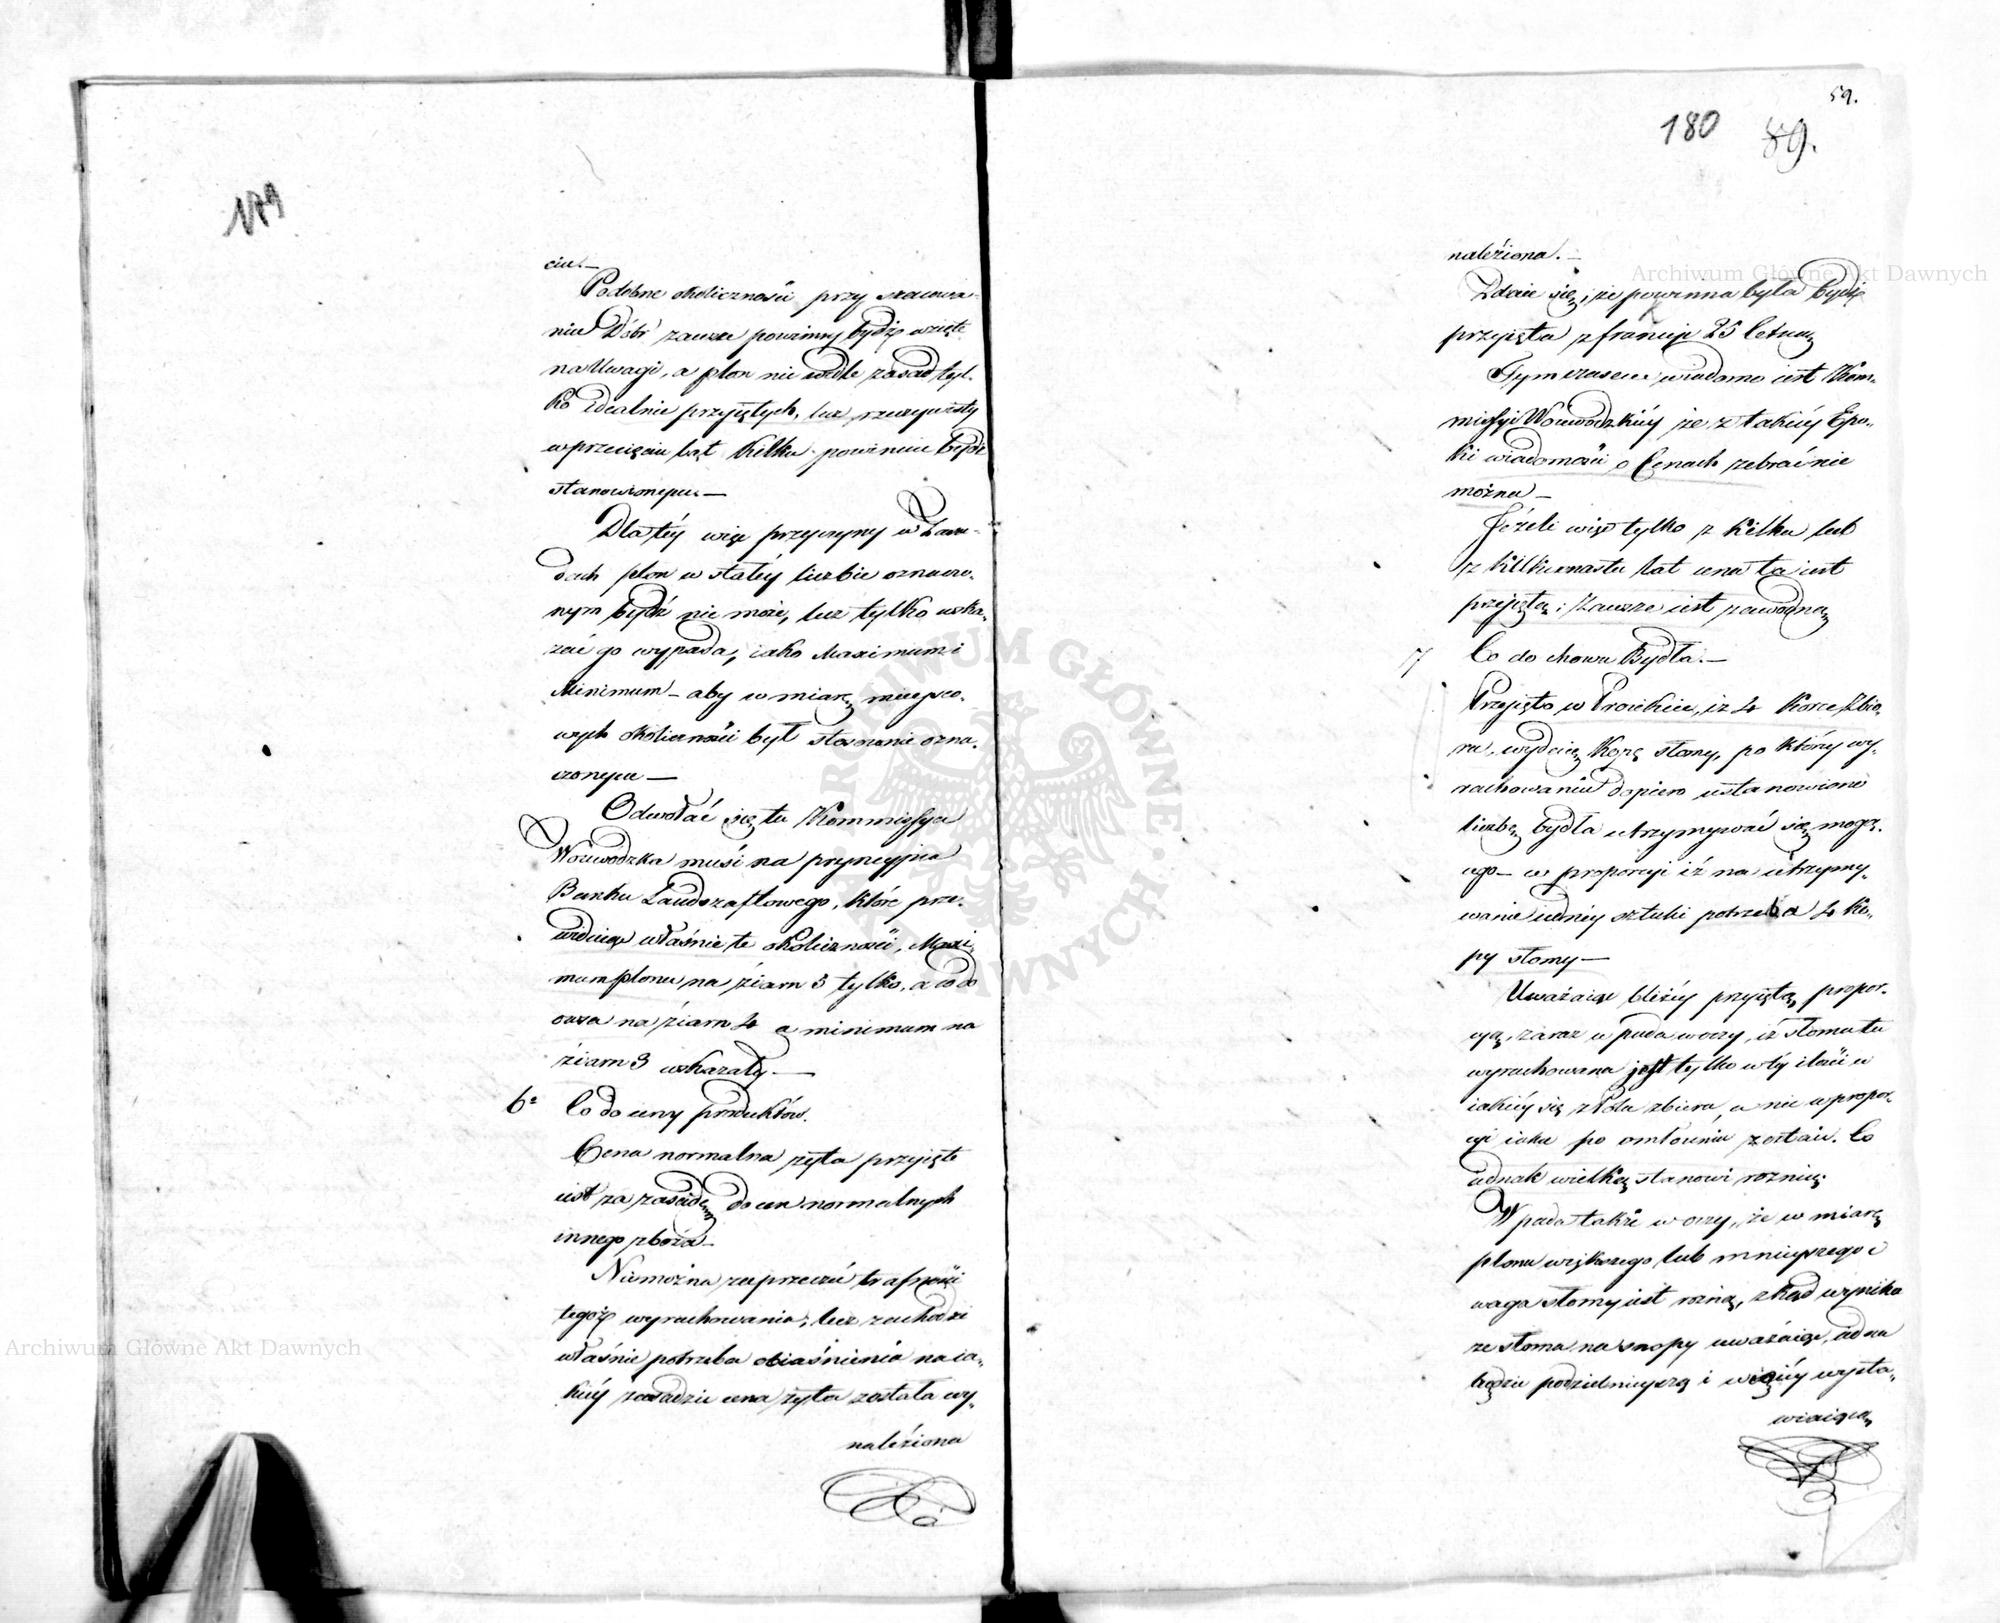 179
ciu. —
Podobne okoliczności przy szacowa-
niu Dóbr zawsze powinny bydź wzięte
na Uwagi, a plon nie wedle zasad tyl-
ko idealnie przyiętych, lecz rzeczywisty
w przecięciu lat kilku powinien bydź
stanowionym. —
Dla téy więc przyczyny w Zasa-
dach plon w stałéy liczbie oznaczo-
nym bydź nie może, lecz tylko wska-
zać go wypada, iako Maximum i
Minimum — aby w miarę mieysco-
wych okoliczności był stosownie ozna-
czonym —
Odwołać się tu Kommissya
Woiewodzka musi na pryncypia
Banku Landszaftowego, które prze-
widuiąc właśnie te okoliczności, Maxi-
mum plonu na źiarn 5 tylko, a co do
owsa na źiarn 4 a minimum na
źiarn 3 wskazały. —
6° Co do ceny produktów.
Cena normalna żyta przyięte
iest za zasadę do cen normalnych
innego zboża —
Niemożna zaprzeczyć trafności
tegóż wyrachowania, lecz zachodzi
właśnie potrzeba obiaśnienia na ia-
kiéy zasadzie cena żyta została wy-
naleźiona
59.
180 89.
naleźiona. —
Zdaie się, że powinna była bydź
przyięta z frakcyi 25 letniey
Tymczasem wiadomo iest Kom-
missyi Woiewodzkiéy że z takiéy Epo-
ki wiadomości o Cenach zebrać nie
można —
Jeżeli więc tylko z kilku lub
z kilkunastu lat cena ta iest
przyiętą; Zawsze iest zawodną
7 Co do chowu Bydła. —
Przyięto w Proiekcie, iż 4 Korce Zbio-
ru, wydaią Kopę słomy, po któréy wy-
rachowaniu dopiero ustanowiono
liczbę bydła utrzymywać się mogą-
cego — w proporcyi iż na utrzymy-
wanie iednéy sztuki potrzeba 4 ko-
py słomy —
Uważaiąc bliźéy przyiętą propor-
cyą, zaraz wpada w oczy, iż słoma tu
wyrachowana jest tylko w téy ilości w
iakiéy się z Pola zbiera, a nie w propor-
cyi iaka po omłóceniu zostaie. Co
iednak wielką stanowi roźnicę
Wpada także w oczy, że w miarę
plonu większego lub mnieyszego i
waga słomy iest roźną, zkąd wynika
że słoma na snopy uważaiąc, iedna
będzie podzielnieyszą i więcéy wysta-
wiaiącą